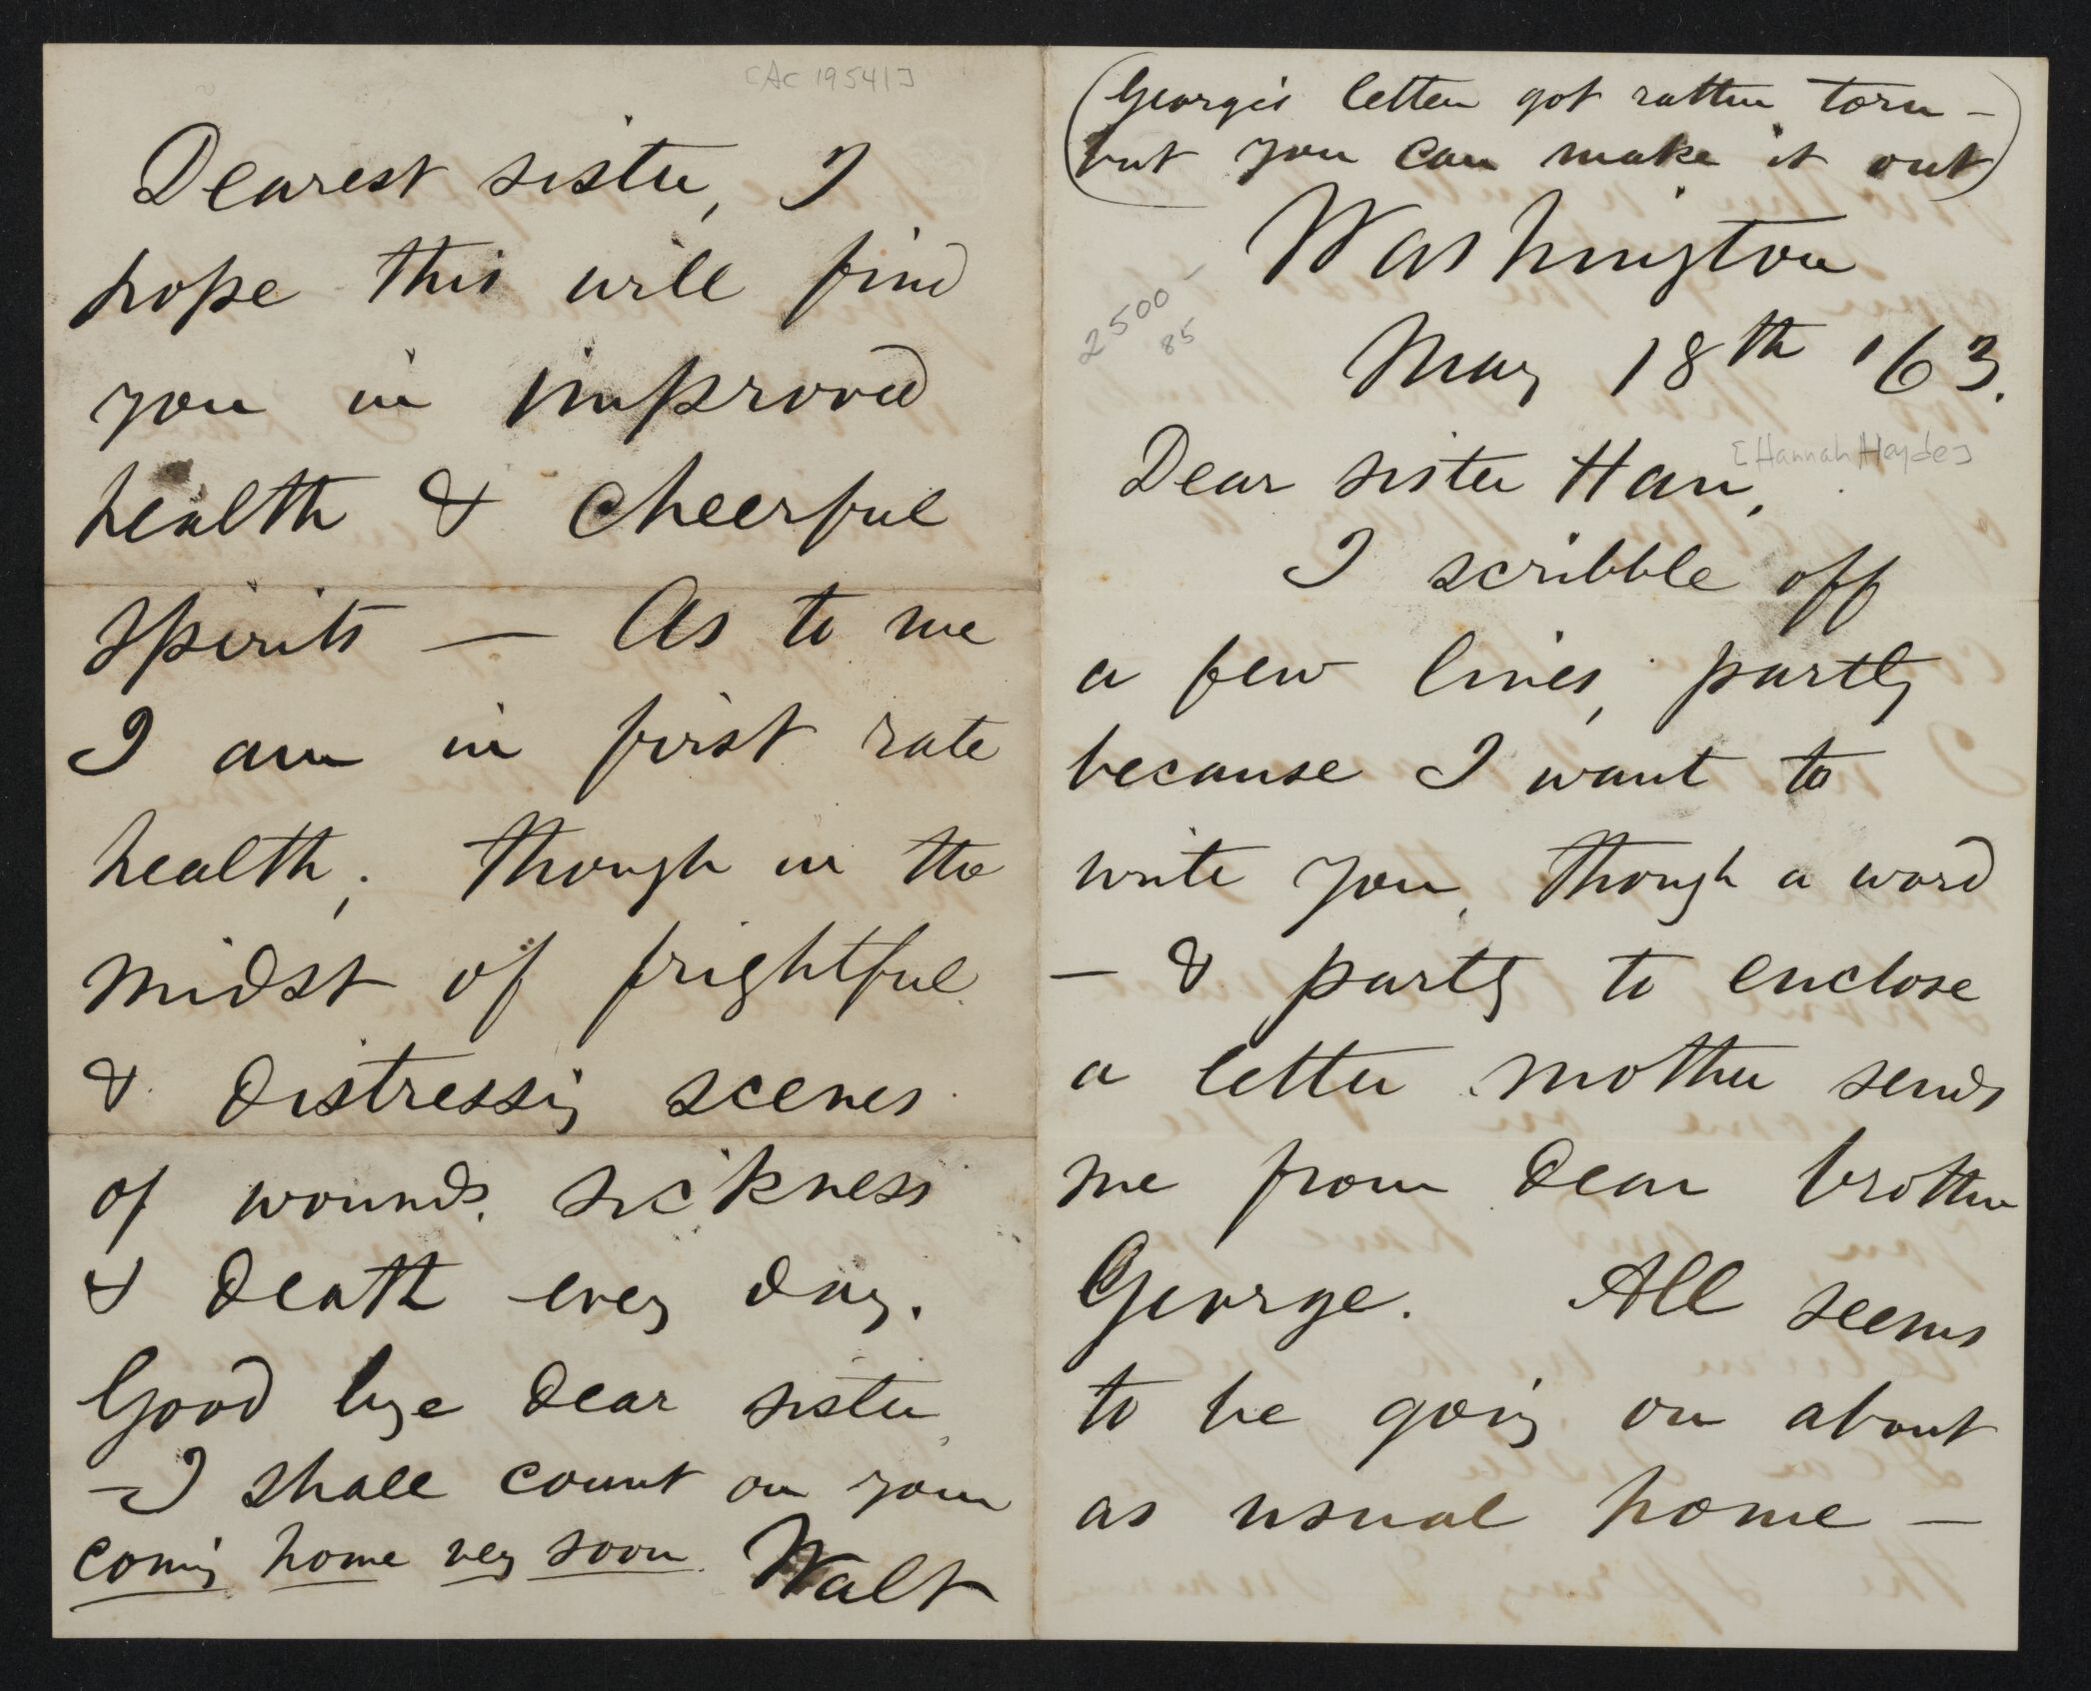 (George's letter got rather torn —
but you can make it out)
Washington
May 18th '63.
2500 —
85
Dear sister Han,
[Hannah Heyde]
I scribble off
a few lines, partly
because I want to
write you, though a word
— & partly to enclose
a letter mother sends
me from dear brother
George. All seems
to be going on about
as usual home —
[Ac 19541]
Dearest sister, I
hope this will find
you in improved
health & cheerful
spirits — As to me
I am in first rate
health, though in the
midst of frightful
& distressing scenes
of wounds, sickness
& death every day.
Good bye dear sister,
— I shall count on your
coming home very soon. Walt